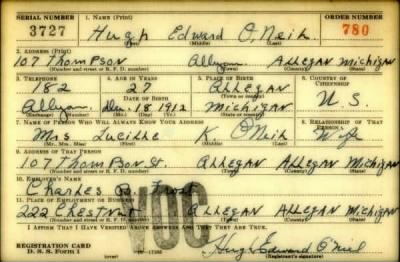 SERIAL NUMBER 1. NAME (Print) ORDER NUMBER
3727 Hugh Edward O'Neil 780
(First) (Middle) (Last)
2. ADDRESS (Print)
107 Thompson Allegan Allegan Michigan
(Number and street or R. F. D. number) (Town) (County) (State)
3. TELEPHONE 4. AGE IN YEARS 5. PLACE OF BIRTH 6. COUNTRY OF CITIZENSHIP
182 27 Allegan
DATE OF BIRTH (Town or county)
Allegan Dec. 18 1912 Michigan U. S.
(Exchange) (Number) (Mo.) (Day) (Yr.) (State or country)
7. NAME OF PERSON WHO WILL ALWAYS KNOW YOUR ADDRESS 8. RELATIONSHIP OF THAT PERSON
Mrs Lucille K. O'Neil Wife
(Mr., Mrs., Miss) (First) (Middle) (Last)
9. ADDRESS OF THAT PERSON
107 Thompson St. Allegan Allegan Michigan
(Number and street or R. F. D. number) (Town) (County) (State)
10. EMPLOYER'S NAME
Charles B.
11. PLACE OF EMPLOYMENT OR BUSINESS
222 Chestnut Allegan Allegan Michigan
(Number and street or R. F. D. number) (Town) (County) (State)
I AFFIRM THAT I HAVE VERIFIED ABOVE ANSWERS AND THAT THEY ARE TRUE.
VOC
REGISTRATION CARD Hugh Edward O'Neil
D. S. S. FORM 1 (Registrant's signature)